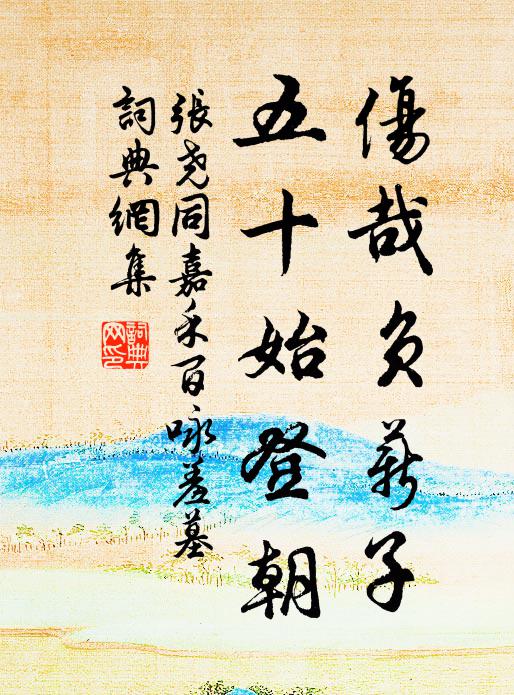 傷哉負薪子
五十始登朝
張尧同嘉禾百咏羞墓
詞典網集
詞典
网印